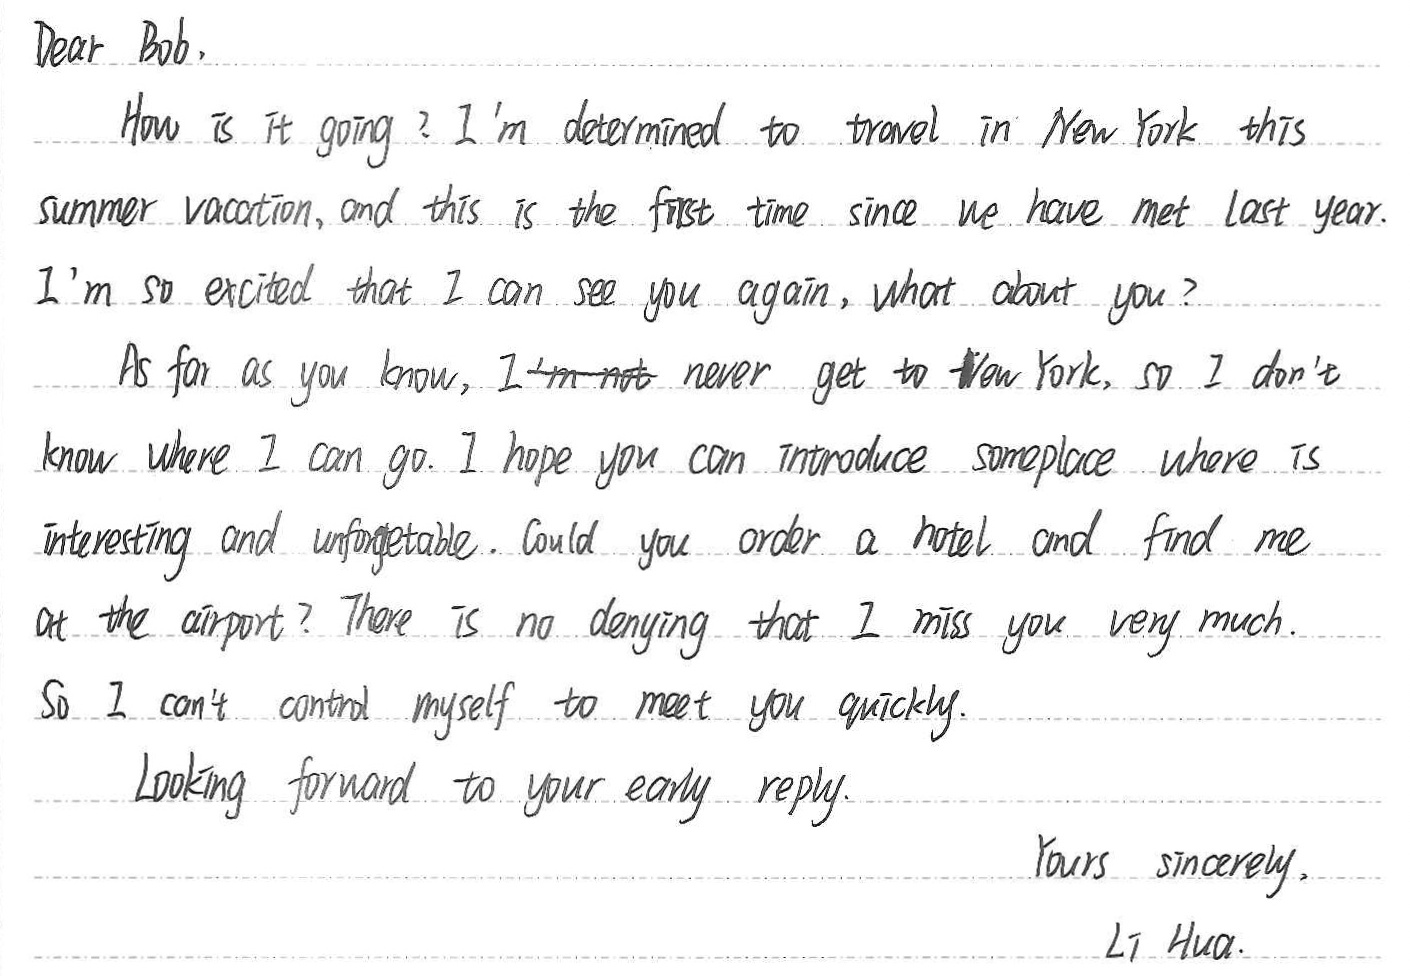 Dear Bob,
How is it going? I'm determined to travel in New York this
summer vacation, and this is the first time since we have met last year.
I'm so excited that I can see you again, what about you?
As far as you know, I never get to New York, so I don't
know where I can go. I hope you can introduce someplace where is
interesting and unforgetable. Could you order a hotel and find me
at the airport? There is no denying that I miss you very much.
So I can't control myself to meet you quickly.
Looking forward to your early reply.
Yours sincerely,
Li Hua.